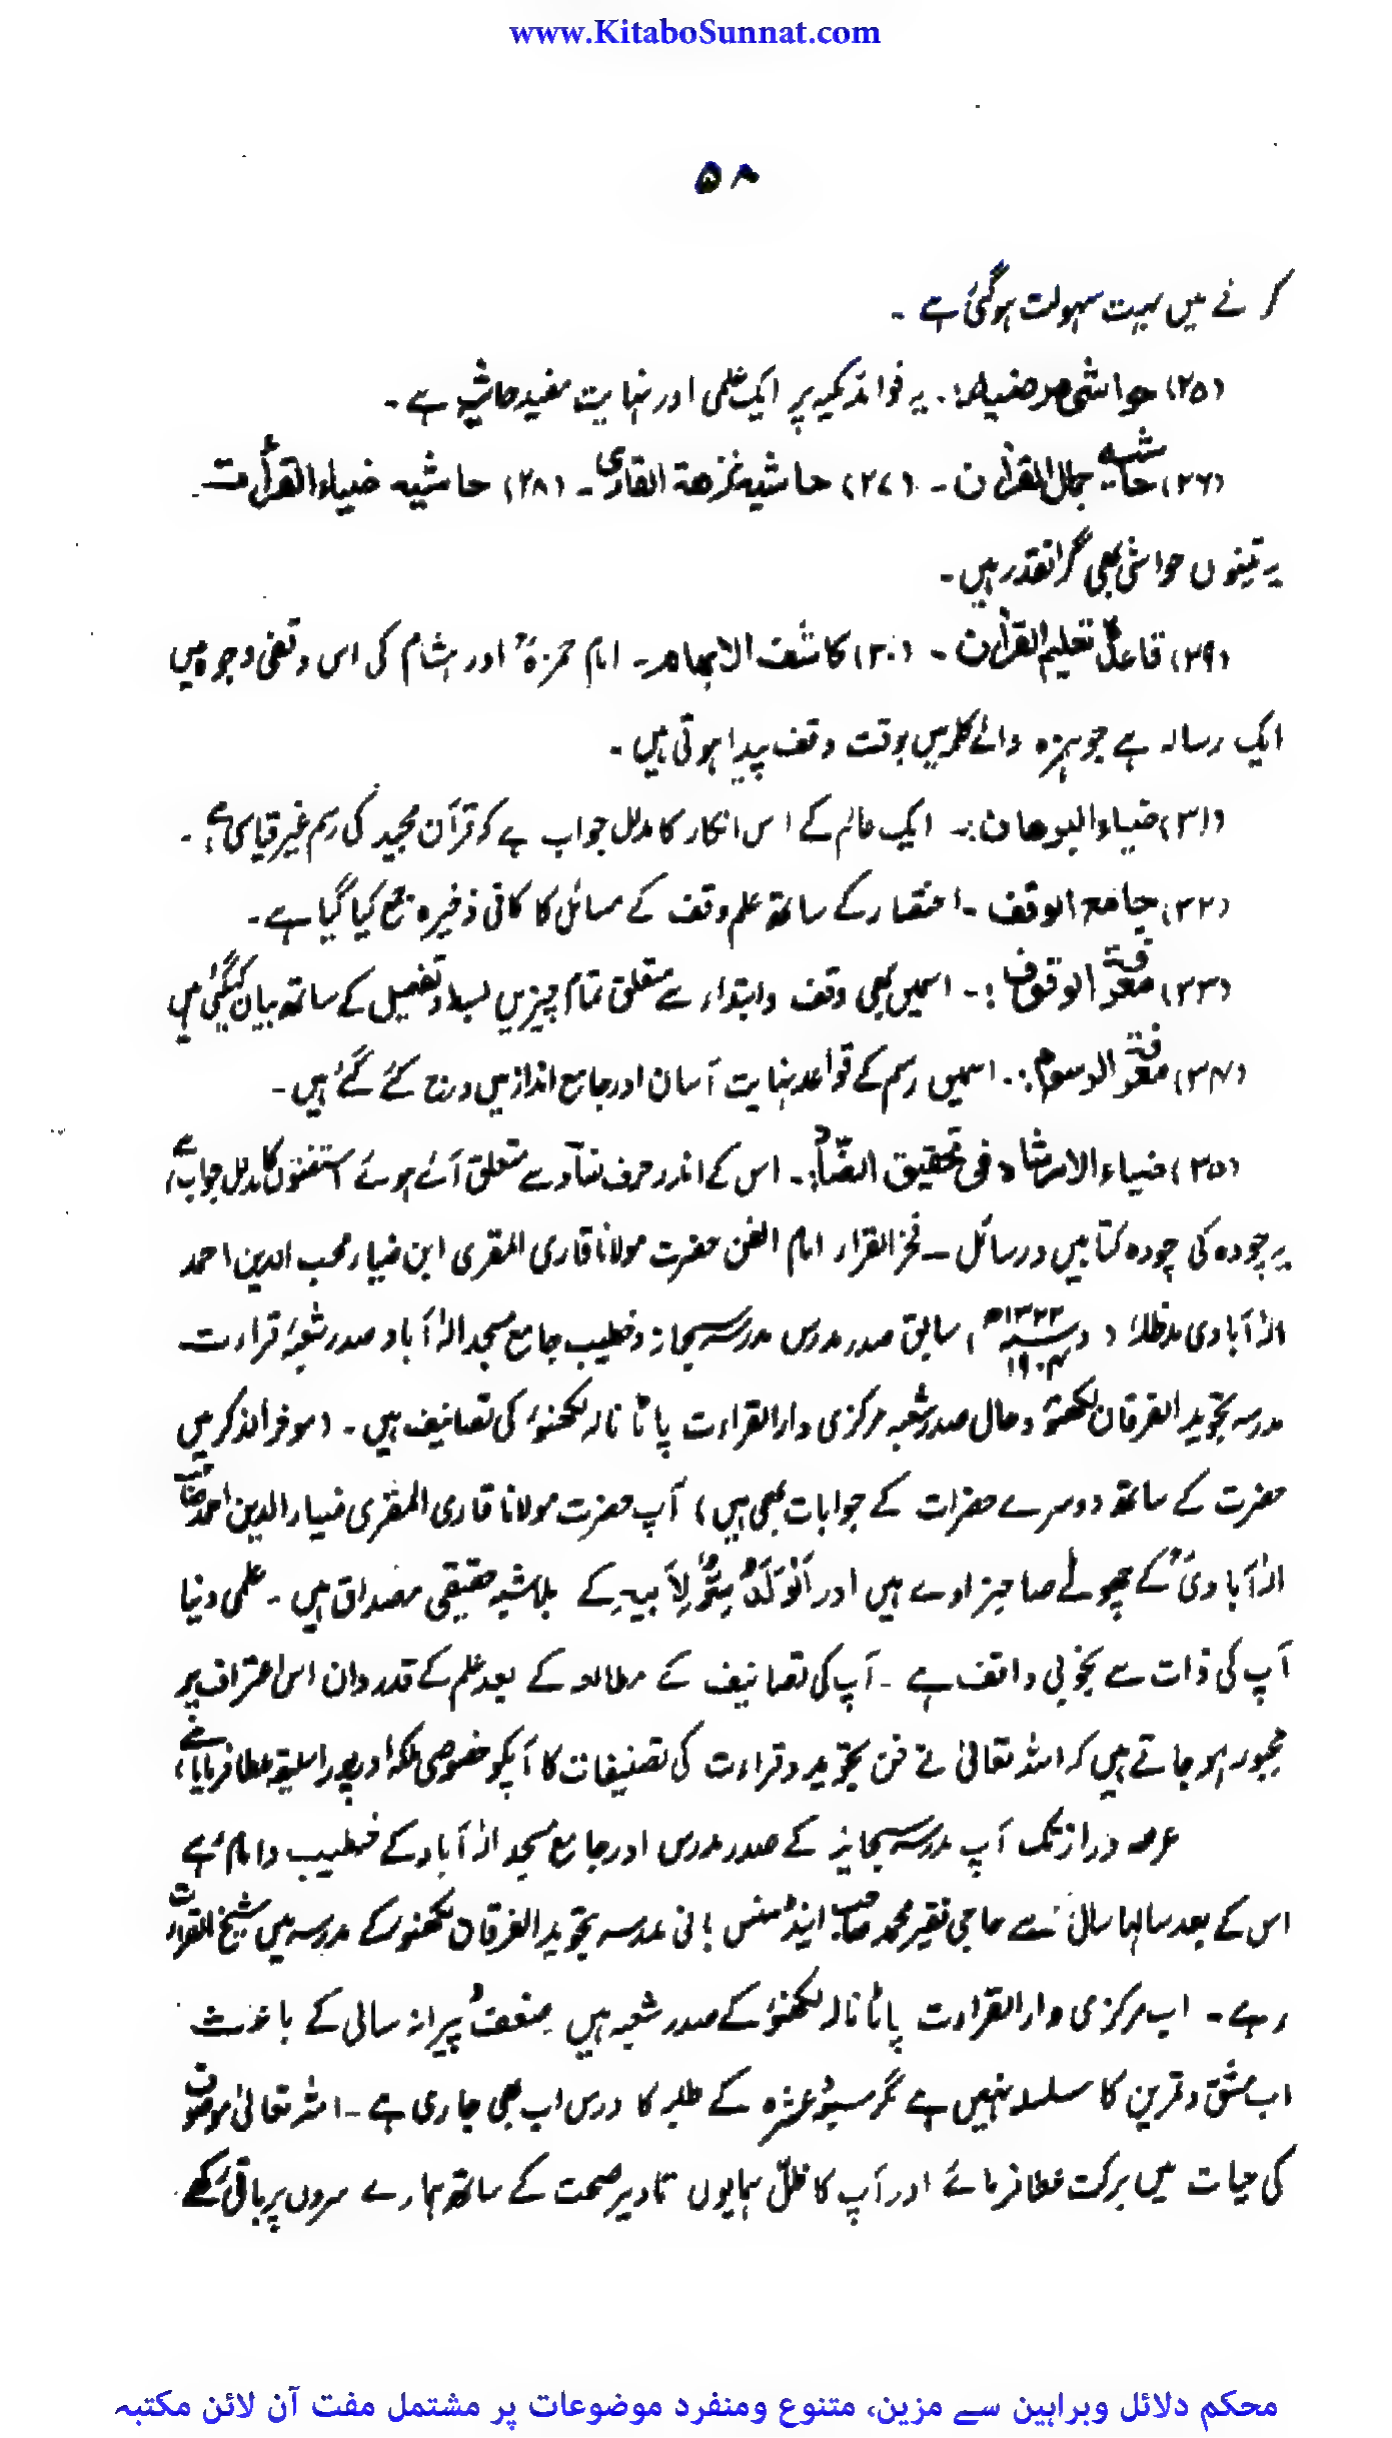 www.KitaboSunnat.com
۵۸
کرنے میں بہت سہولت ہوگئی ہے ۔
(۲۵) حواشی مرضیہ :۔ یہ فوائد مکیہ پر ایک علمی اور نہایت مفید حاشیہ ہے ۔
(۲۶) حاشیہ جمال القرآن ۔ (۲۷) حاشیہ نزھۃ القاری ۔ (۲۸) حاشیہ ضیاء القرأت ۔
یہ تینوں حواشی بھی گرانقدر ہیں ۔
(۲۹) قاعدہ تعلیم القرآن ۔ (۳۰) کاشف الابھام ۔ امام حمزہؒ اور ہشام کی اس وقفی وجوہ میں
ایک رسالہ ہے جو ہمزہ والے کلمہ میں بوقت وقف پیدا ہوتی ہیں ۔
(۳۱) ضیاء البرھان :۔ ایک عالم کے اس انکار کا مدلل جواب ہے کہ قرآن مجید کی رسم غیر قیاسی ہے ۔
(۳۲) جامع الوقف ۔ اختصار کے ساتھ علم وقف کے مسائل کا کافی ذخیرہ جمع کیا گیا ہے ۔
(۳۳) معرفۃ الوقوف :۔ اسمیں بھی وقف وابتداء سے متعلق تمام چیزیں بسط وتفصیل کے ساتھ بیان کیگئی ہیں
(۳۴) معرفۃ الرسوم :۔ اسمیں رسم کے قواعد نہایت آسان اور جامع انداز میں درج کئے گئے ہیں ۔
(۳۵) ضیاء الارشاد فی تحقیق الضّاد :۔ اس کے اندر حرف ضآد سے متعلق آئے ہوئے استفتوں کا مدلل جواب ہے ،
یہ چودہ کی چودہ کتابیں ورسائل ۔ فخر القراء امام الفن حضرت مولانا قاری المقری ابن ضیاء محب الدین احمد
الٰہ آبادی مدظلہٗ ( و ۱۳۲۲ھ ۱۹۰۴ ) سابق صدر مدرس مدرسہ سبحانیہ وخطیب جامع مسجد الٰہ آباد صدر شعبۂ قراءت
مدرسہ تجوید الفرقان لکھنؤ وحال صدر شعبہ مرکزی دارالقراءت پاٹا نالہ لکھنؤ کی تصانیف ہیں ۔ (موخر الذکر میں
حضرت کے ساتھ دوسرے حضرات کے جوابات بھی ہیں) آپ حضرت مولانا قاری المقری ضیاء الدین احمد صاحب
الٰہ آبادیؒ کے چھوٹے صاحبزادے ہیں اور اَلْوَلَدُ سِرٌّ لِاَبِیہِ کے بلاشبہ حقیقی مصداق ہیں ۔ علمی دنیا
آپ کی ذات سے بخوبی واقف ہے ۔ آپ کی تصانیف کے مطالعہ کے بعد علم کے قدر دان اس اعتراف پر
مجبور ہوجاتے ہیں کہ اللہ تعالیٰ نے فن تجوید وقراءت کی تصنیفات کا آپکو خصوصی ملکہ اور پورا سلیقہ عطا فرمایا ہے ،
عرصہ دراز تک آپ مدرسہ سبحانیہ کے صدر مدرس اور جامع مسجد الٰہ آباد کے خطیب وامام رہے
اس کے بعد سالہا سال سے حاجی فقیر محمد صاحب اینڈ سنس بانی مدرسہ تجوید الفرقان لکھنؤ کے مدرسہ میں شیخ القراءت
رہے ۔ اب مرکزی دارالقراءت پاٹا نالہ لکھنؤ کے صدر شعبہ ہیں ضعف وپیرانہ سالی کے باعث
اب مشق وتمرین کا سلسلہ نہیں ہے مگر سبعہ وعشرہ کے طلبہ کا درس اب بھی جاری ہے ۔ اللہ تعالیٰ موصوف
کی حیات میں برکت عطا فرمائے اور آپ کا ظلّ ہمایوں تا دیر صحت کے ساتھ ہمارے سروں پر باقی رکھے
محکم دلائل وبراہین سے مزین، متنوع ومنفرد موضوعات پر مشتمل مفت آن لائن مکتبہ